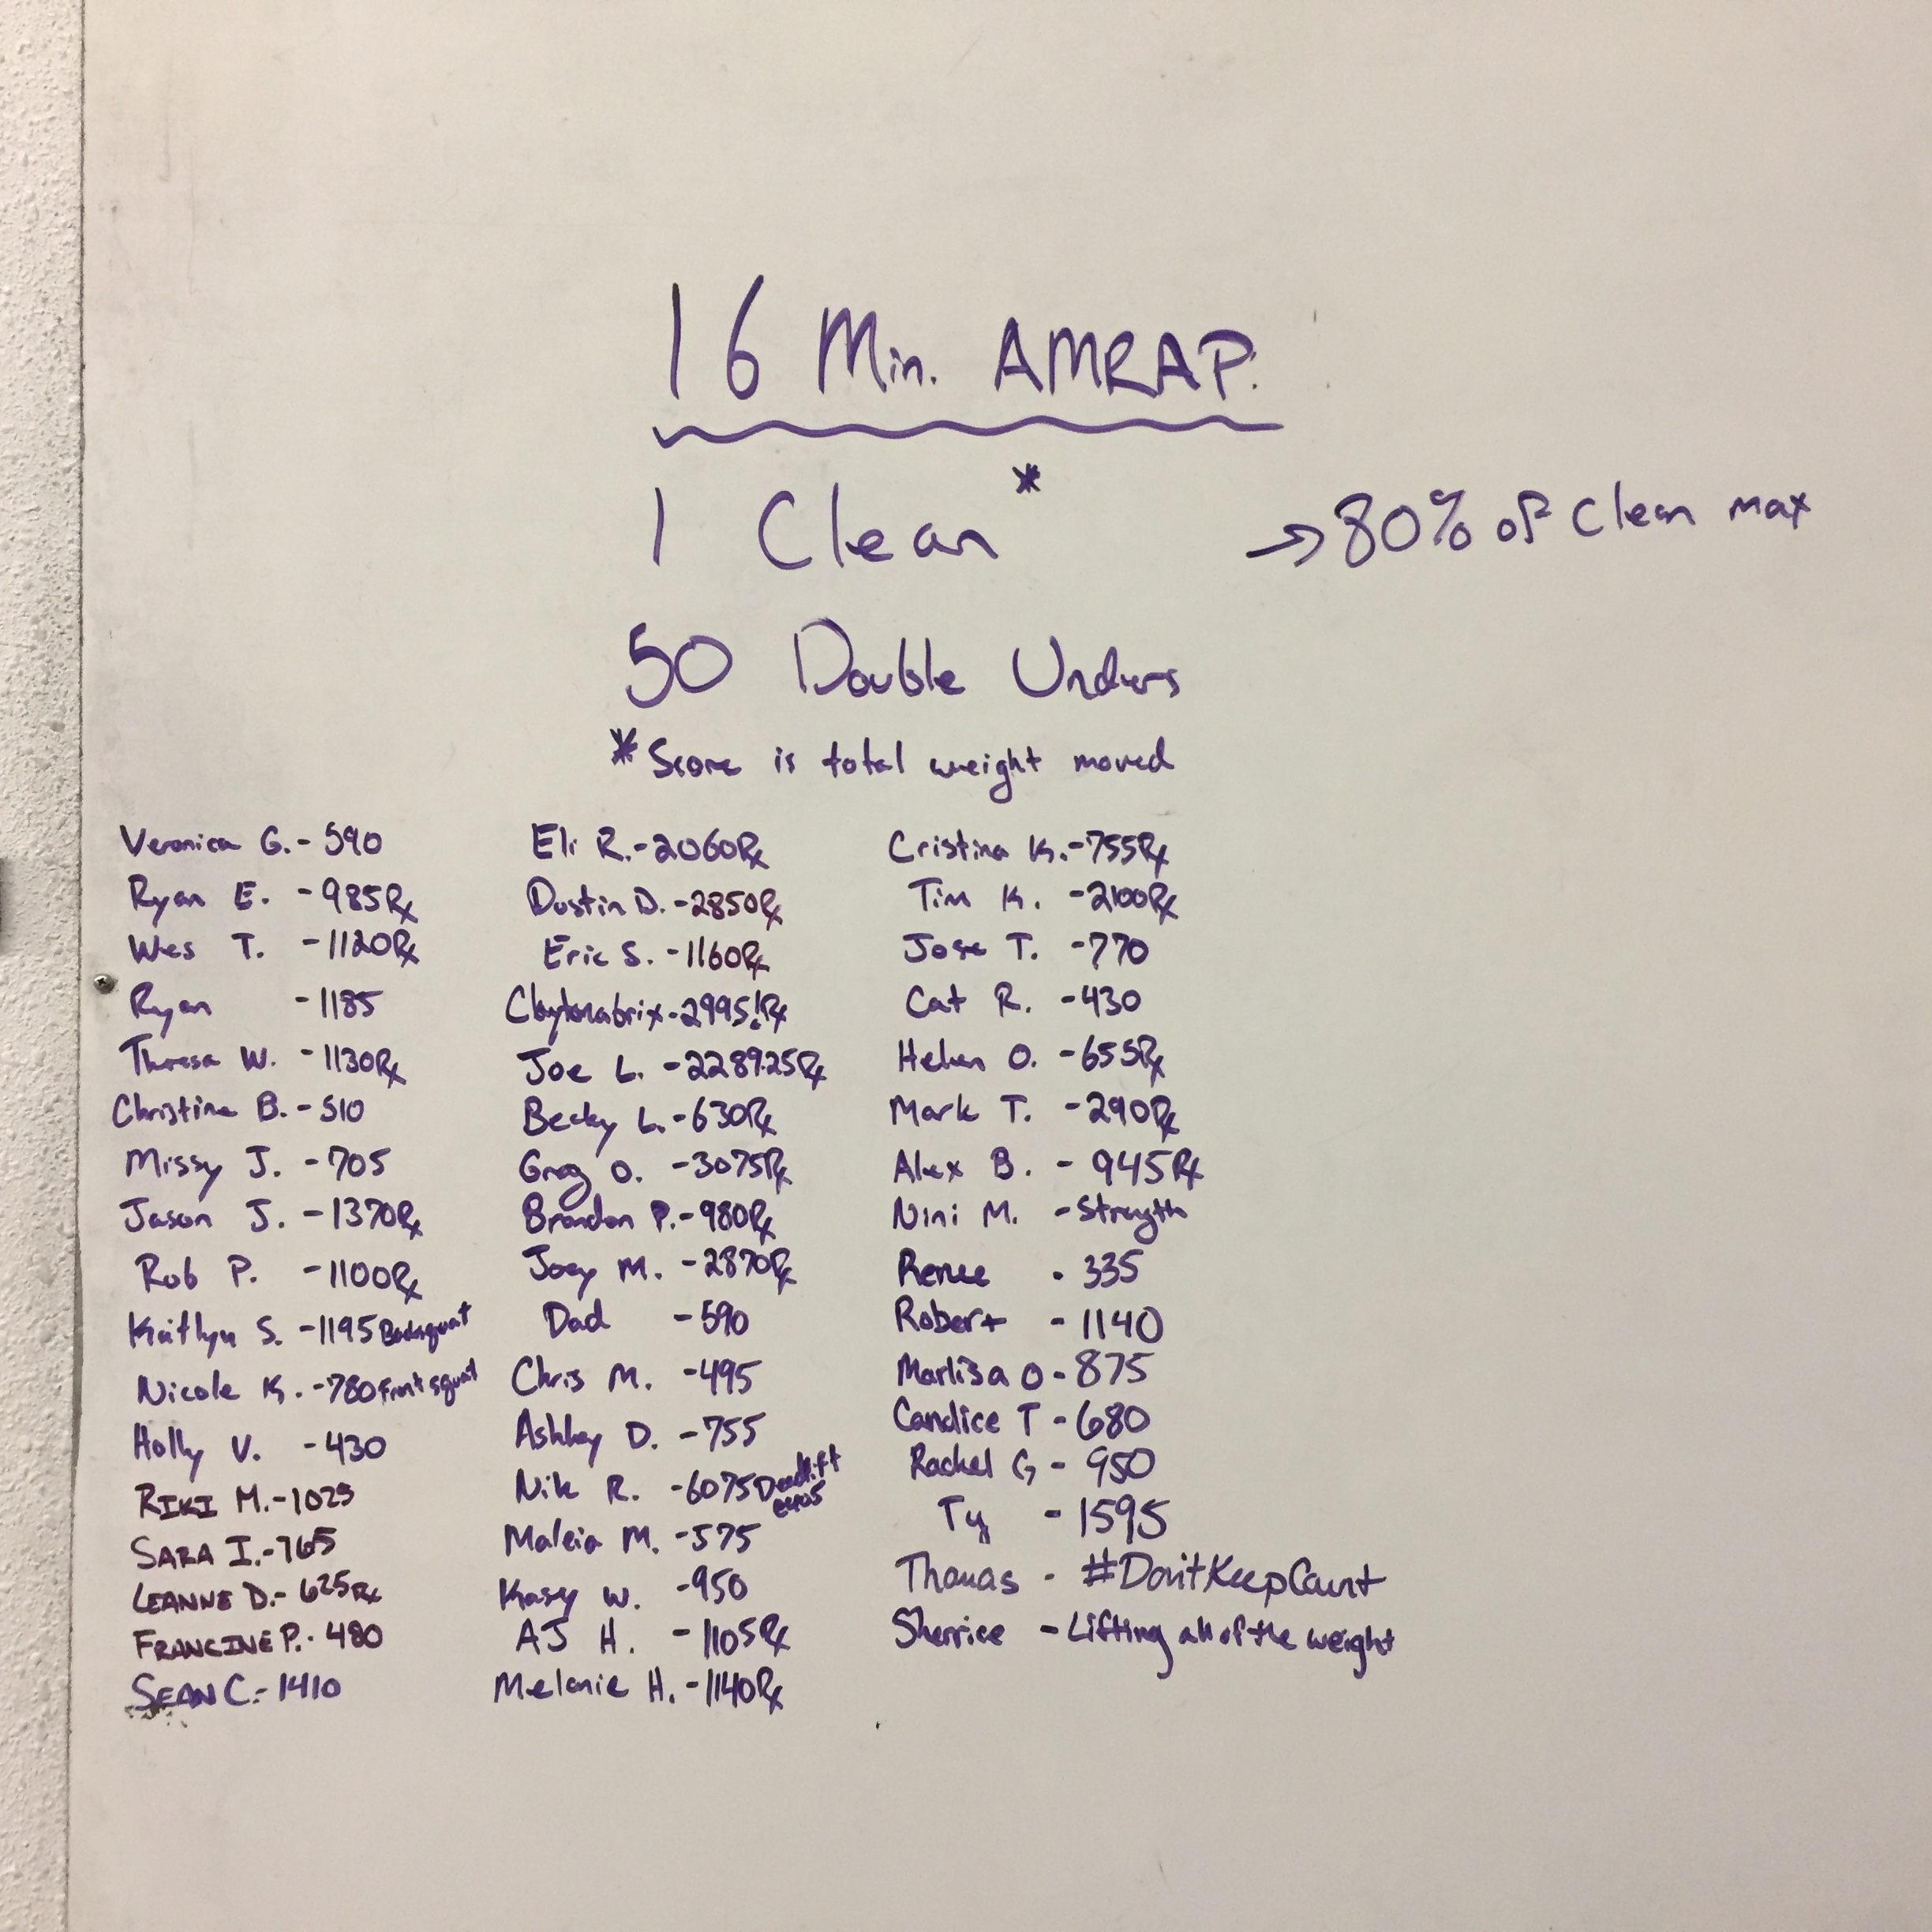 16 Min. AMRAP.
1 Clean*
→ 80% of Clean max
50 Double Unders
*Score is total weight moved
Veronica G. - 590
Ryan E. - 985 Rx
Wes T. - 1120 Rx
Ryan - 1185
Theresa W. - 1130 Rx
Christine B. - 510
Missy J. - 705
Jason J. - 1370 Rx
Rob P. - 1100 Rx
Kaitlyn S. - 1195 Backsquat
Nicole K. - 780 Front squat
Holly V. - 430
RIKI M. - 1025
SARA I. - 765
LEANNE D. - 625 Rx
FRANCINE P. - 480
SEAN C. - 1410
Eli R. - 2060 Rx
Dustin D. - 2850 Rx
Eric S. - 1160 Rx
Claytonatrix - 2995! Rx
Joe L. - 2289.25 Rx
Becky L. - 630 Rx
Greg O. - 3075 Rx
Brandon P. - 980 Rx
Joey M. - 2870 Rx
Dad - 590
Chris M. - 495
Ashley D. - 755
Nik R. - 6075 Deadlift
Maleia M. - 575
Kasy W. - 950
AJ H. - 1105 Rx
Melanie H. - 1140 Rx
Cristina K. - 755 Rx
Tim K. - 2100 Rx
Jose T. - 770
Cat R. - 430
Helen O. - 655 Rx
Mark T. - 290 Rx
Alex B. - 945 Rx
Nini M. - Strength
Renee - 335
Robert - 1140
Marlisa O - 875
Candice T - 680
Rachel G - 950
Ty - 1595
Thomas - #Don'tKeepCount
Sherrice - Lifting all of the weight